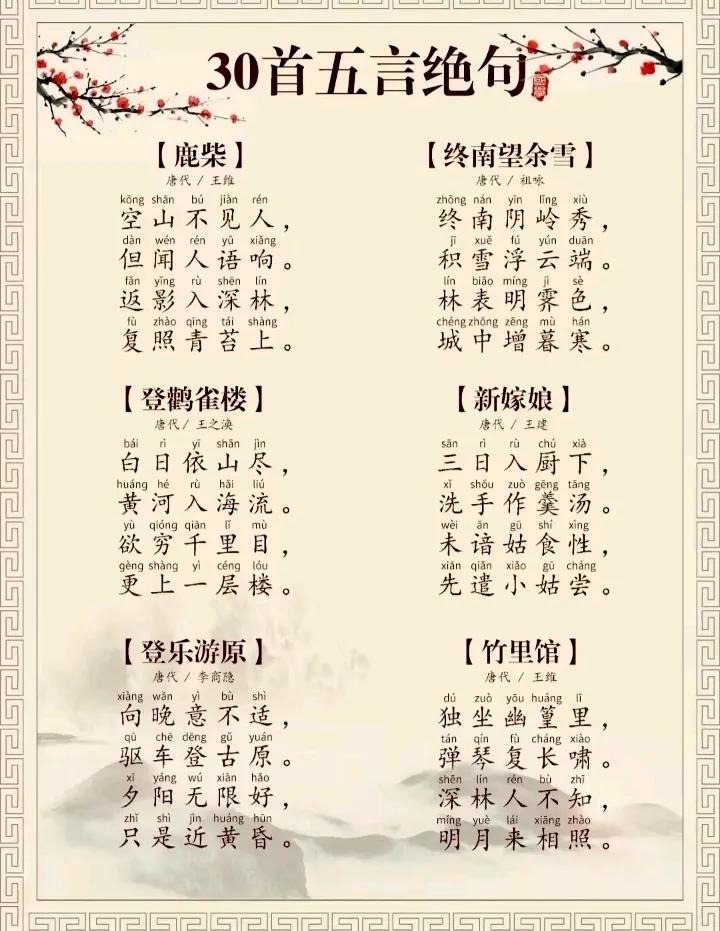 30首五言绝句
国学
【鹿柴】
唐代 / 王维
kōng shān bú jiàn rén
空山不见人，
dàn wén rén yǔ xiǎng
但闻人语响。
fǎn yǐng rù shēn lín
返影入深林，
fù zhào qīng tái shàng
复照青苔上。
【终南望余雪】
唐代 / 祖咏
zhōng nán yīn lǐng xiù
终南阴岭秀，
jī xuě fú yún duān
积雪浮云端。
lín biǎo míng jì sè
林表明霁色，
chéng zhōng zēng mù hán
城中增暮寒。
【登鹳雀楼】
唐代 / 王之涣
bái rì yī shān jìn
白日依山尽，
huáng hé rù hǎi liú
黄河入海流。
yù qióng qiān lǐ mù
欲穷千里目，
gèng shàng yì céng lóu
更上一层楼。
【新嫁娘】
唐代 / 王建
sān rì rù chú xià
三日入厨下，
xǐ shǒu zuò gēng tāng
洗手作羹汤。
wèi ān gū shí xìng
未谙姑食性，
xiān qiǎn xiǎo gū cháng
先遣小姑尝。
【登乐游原】
唐代 / 李商隐
xiàng wǎn yì bù shì
向晚意不适，
qū chē dēng gǔ yuán
驱车登古原。
xī yáng wú xiàn hǎo
夕阳无限好，
zhǐ shì jìn huáng hūn
只是近黄昏。
【竹里馆】
唐代 / 王维
dú zuò yōu huáng lǐ
独坐幽篁里，
tán qín fù cháng xiào
弹琴复长啸。
shēn lín rén bù zhī
深林人不知，
míng yuè lái xiāng zhào
明月来相照。